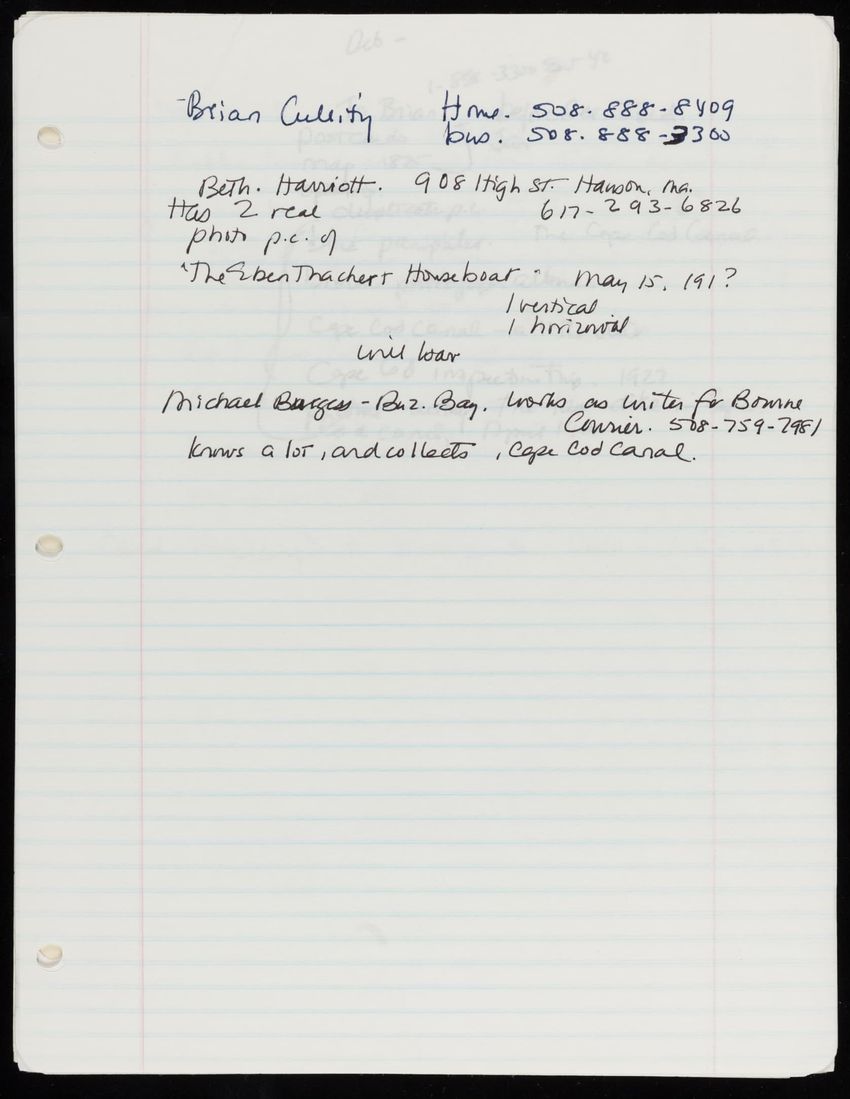 Brian Cullity Home. 508. 888-8409
bus. 508. 888-3300
Beth. Harriott. 908 High St. Hanson, Ma.
Has 2 real 617-293-6826
photo p.c. of
"The Eben Thacher Houseboat" May 15, 191?
1 vertical
1 horizontal
will loan
Michael Burgess - Buz. Bay. Works as writer for Bourne
Courier. 508-759-7981
knows a lot, and collects, Cape Cod Canal.